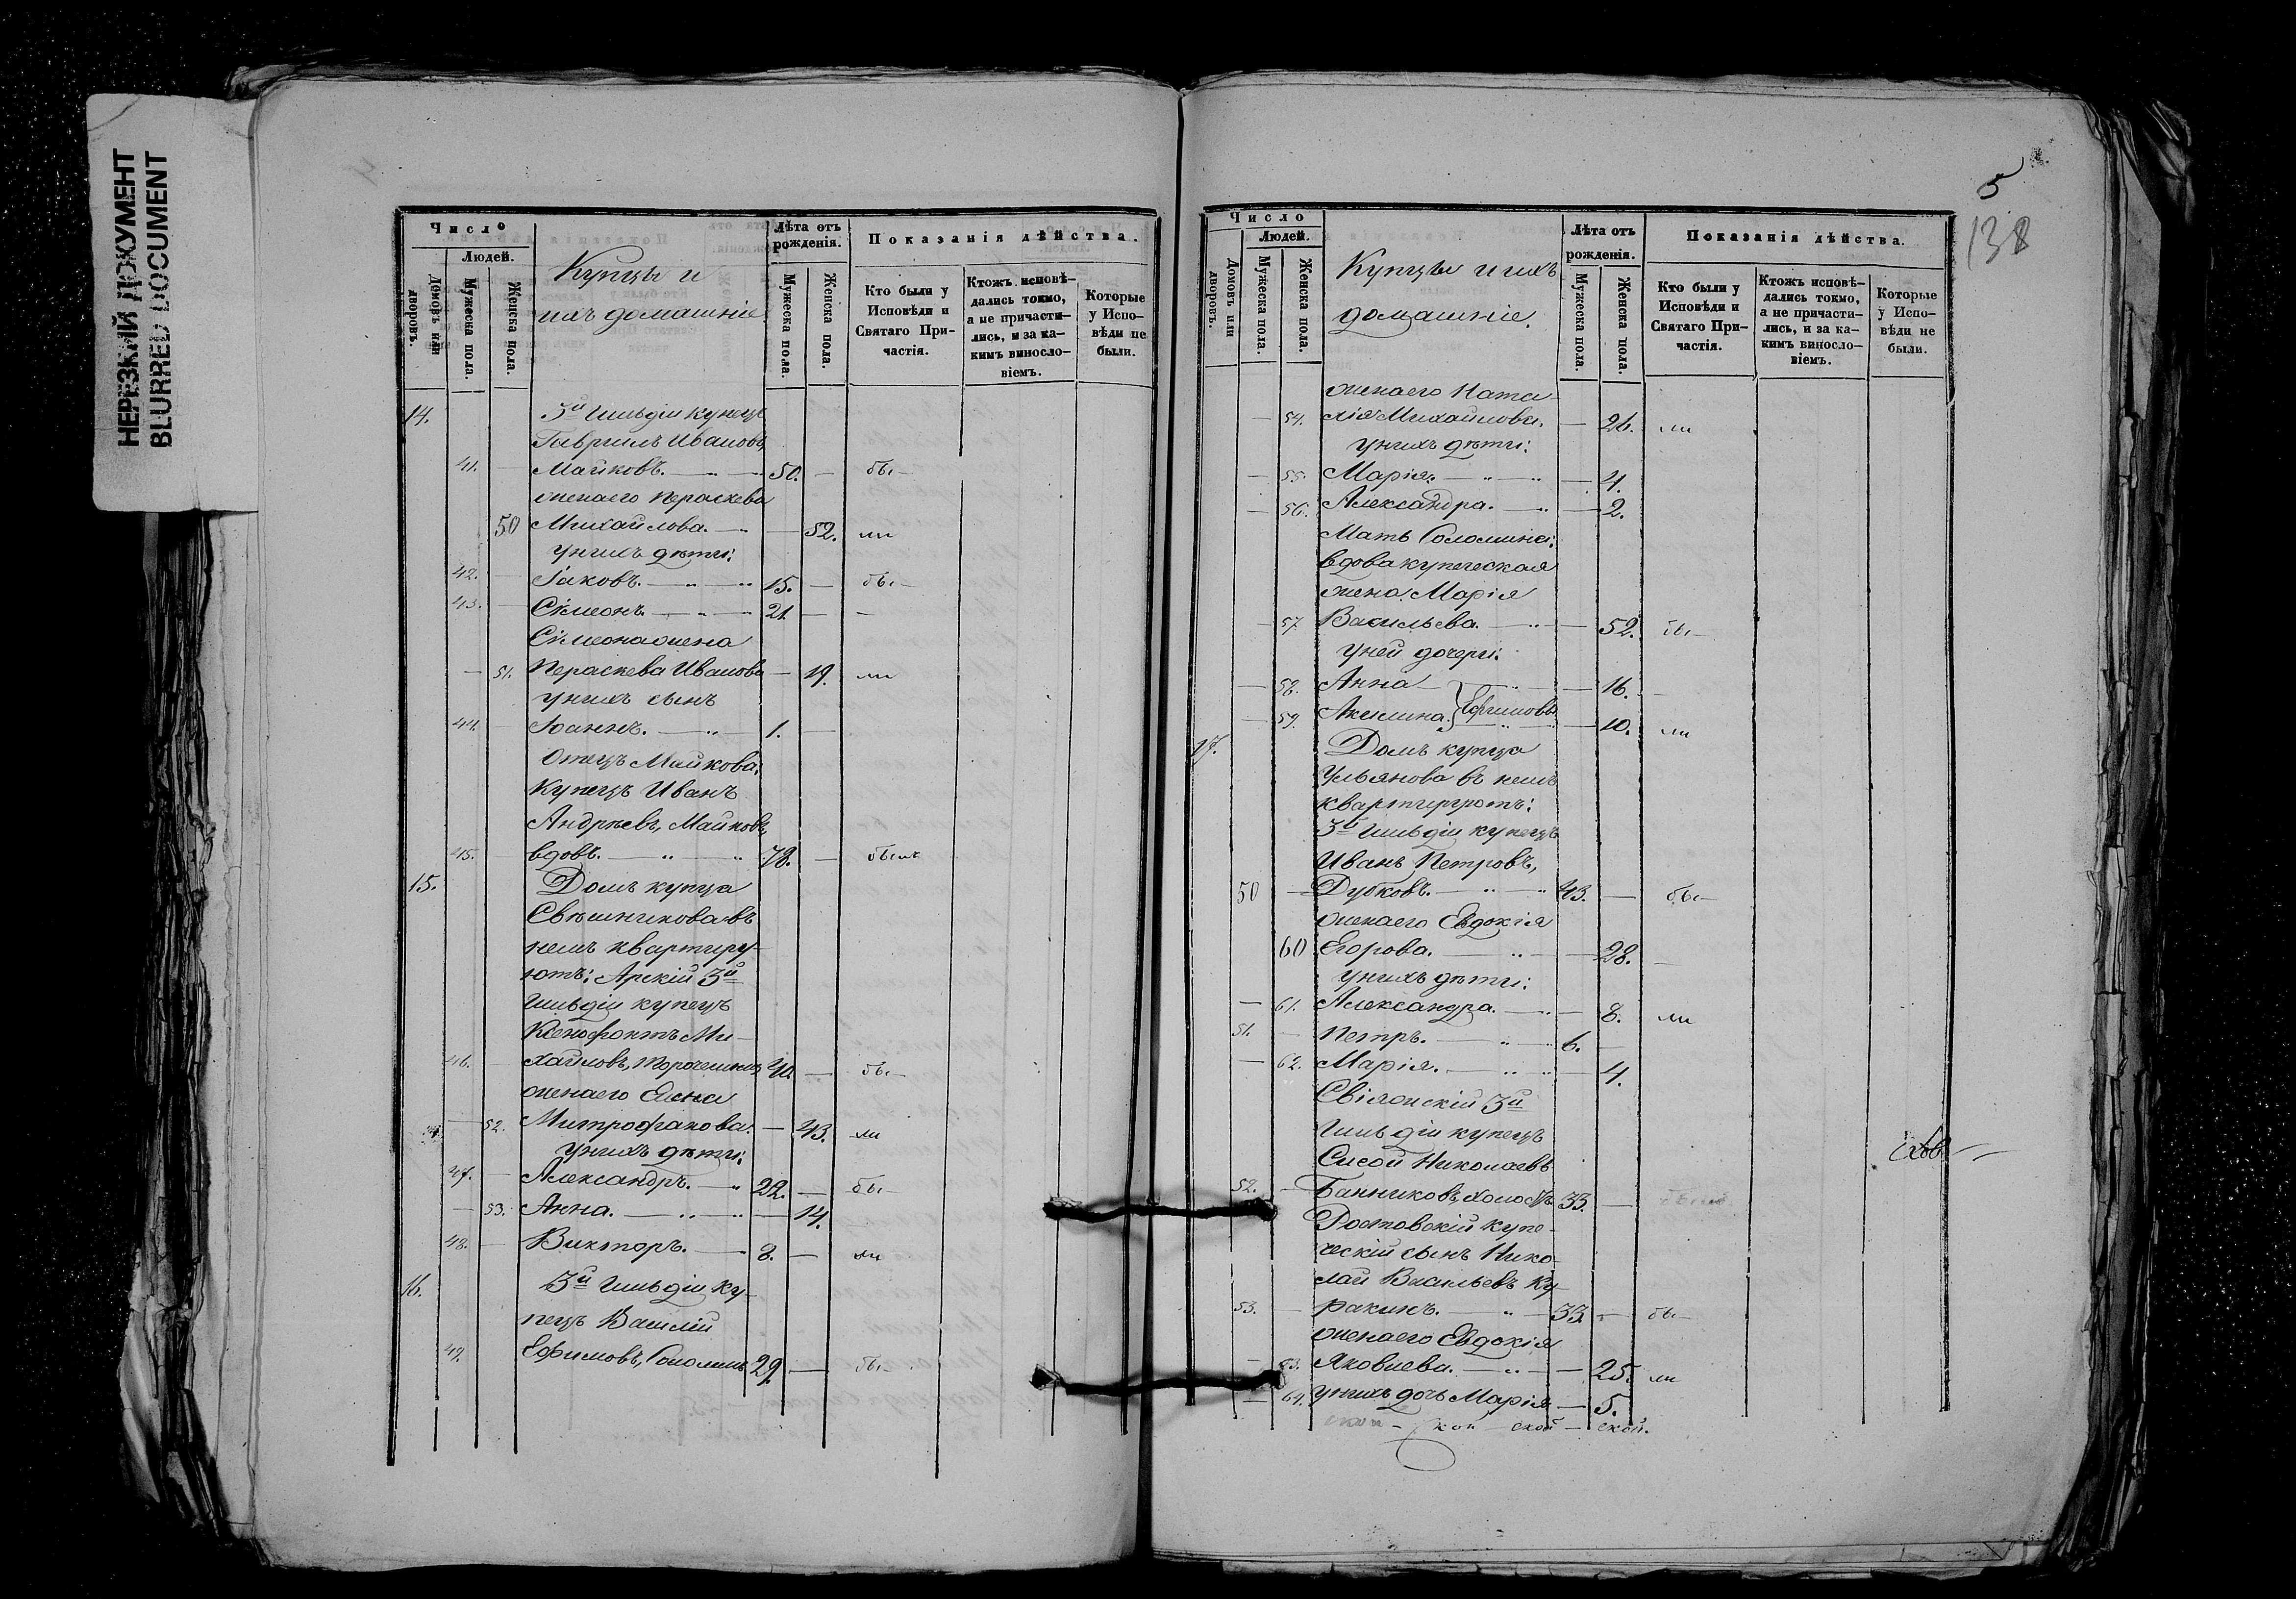 НЕРЕЗКИЙ ДОКУМЕНТ
BLURRED DOCUMENT
Число
Людей.
Домовъ или дворовъ.
Мужеска пола.
Женска пола.
Купцы и
ихъ домашніе.
Лѣта отъ рожденія.
Мужеска пола.
Женска пола.
Показанія дѣйства.
Кто были у Исповѣди и Святаго Причастія.
Ктожъ исповѣдались токмо, а не причастились, и за какимъ винословіемъ.
Которые у Исповѣди не были.
14. 3й Гильдіи купецъ
Гаврилъ Ивановъ,
41. — Майковъ. — 50. — бы—
жена его Пераскева
50 Михайлова. — — 52. ли
У нихъ дѣти:
42. — Іаковъ. — 15. — бы—
43. — Сѵмеонъ. — 21. — —
Сѵмеона жена
— 51. Пераскева Иванова — 19. ли
У нихъ сынъ
44. — Іоаннъ. — 1. —
Отецъ Майкова:
Купецъ Иванъ
Андреевъ, Майковъ,
45. — вдовъ. — 78. — былъ
15. Домъ купца
Свѣшникова въ
немъ квартиру-
ютъ: Арскій 3й
Гильдіи купецъ
Ксенофонтъ Ми-
46. — хайловъ, 40. — бы—
жена его Елена
— 52. Митрофанова. — 43. ли
У нихъ дѣти:
47. — Александръ. — 22. — бы—
— 53. Анна. — — 14.
48. — Викторъ. — 8. — ли
16. 3й Гильдіи ку-
пецъ Василій
49. Ефимовъ, Соломинъ 29. — бы—
5
138
Число
Людей.
Домовъ или дворовъ.
Мужеска пола.
Женска пола.
Купцы и ихъ
домашніе.
Лѣта отъ рожденія.
Мужеска пола.
Женска пола.
Показанія дѣйства.
Кто были у Исповѣди и Святаго Причастія.
Ктожъ исповѣдались токмо, а не причастились, и за какимъ винословіемъ.
Которые у Исповѣди не были.
жена его Ната-
— 54. лія Михайлова. — 26. ли
У нихъ дѣти:
— 55. Марія. — — 4.
— 56. Александра. — — 2.
Мать Соломина:
вдова купеческая
жена Марія
— 57. Васильева. — — 52. бы—
У ней дочери:
— 58. Анна — — 16. —
— 59. Акилина } Ефимовы — 10. ли
17. Домъ купца
Ульянова въ немъ
квартируютъ:
3й Гильдіи купецъ
Иванъ Петровъ,
50 — Дубковъ. — 43. — бы—
жена его Евдокія
60 Егорова. — — 28. —
У нихъ дѣти:
— 61. Александра. — — 8. ли
51. — Петръ. — 6. —
— 62. Марія. — — 4.
Свіяжскій 3й
Гильдіи купецъ
Сисой Николаевъ
52. — Банниковъ, холостъ 33. —
Ростовскій купе-
ческій сынъ Нико-
лай Васильевъ Ку-
53. — ракинъ. — 33. — бы—
жена его Евдокія
— 63. Яковлева. — — 25. ли
— 64. У нихъ дочь Марія — 5.
ской — ской.